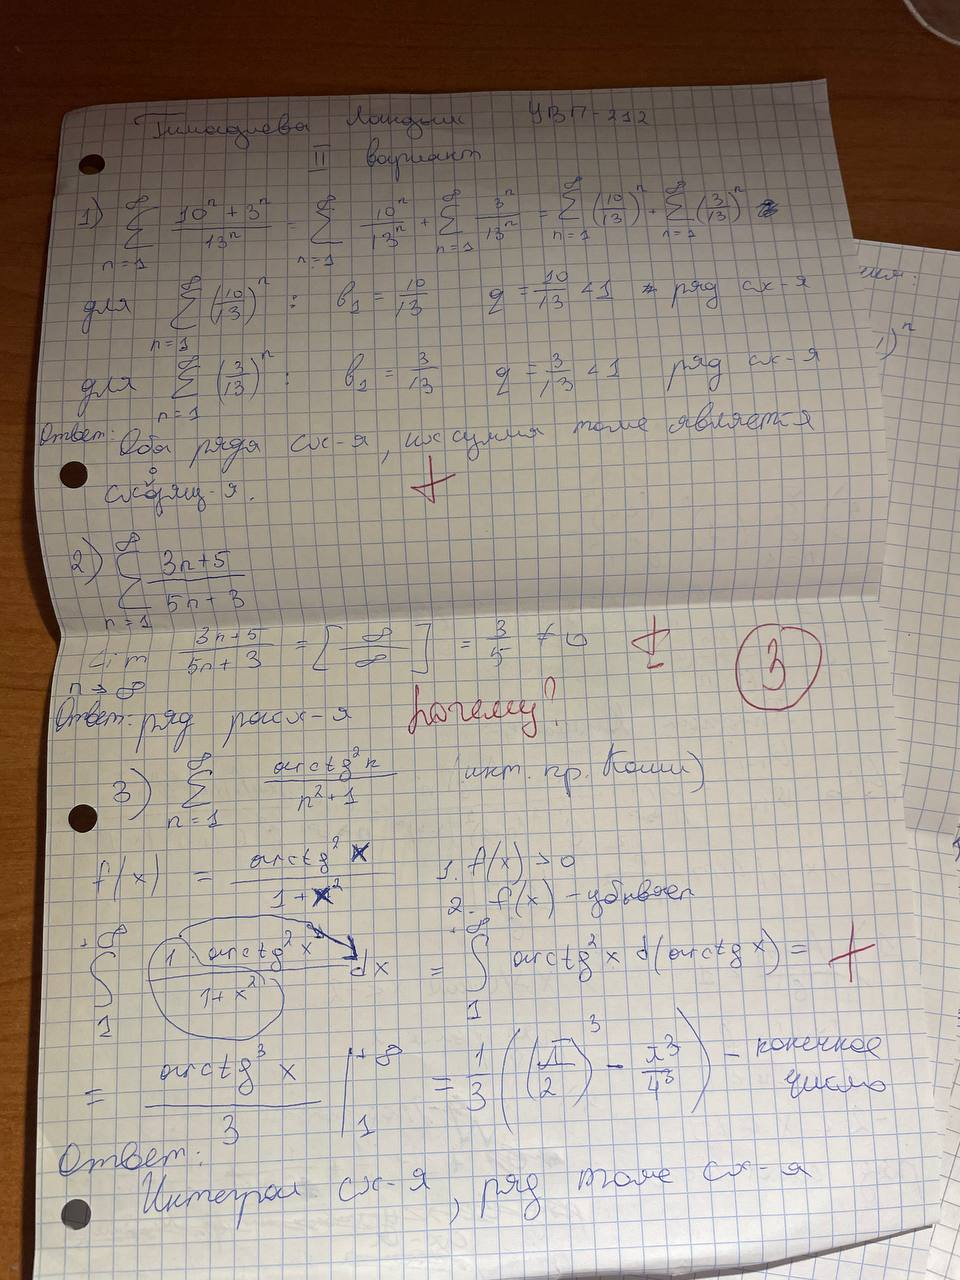 УВП-212
II вариант
1) \sum_{n=1}^{\infty} \frac{10^n + 3^n}{13^n} = \sum_{n=1}^{\infty} \frac{10^n}{13^n} + \sum_{n=1}^{\infty} \frac{3^n}{13^n} = \sum_{n=1}^{\infty} (\frac{10}{13})^n + \sum_{n=1}^{\infty} (\frac{3}{13})^n
для \sum_{n=1}^{\infty} (\frac{10}{13})^n : b_1 = \frac{10}{13} q = \frac{10}{13} < 1 ряд сх-я
для \sum_{n=1}^{\infty} (\frac{3}{13})^n : b_1 = \frac{3}{13} q = \frac{3}{13} < 1 ряд сх-я
Ответ: Оба ряда сх-я, их сумма тоже является
сходящ-я. +
2) \sum_{n=1}^{\infty} \frac{3n+5}{5n+3}
Lim_{n→∞} \frac{3n+5}{5n+3} = [\frac{∞}{∞}] = \frac{3}{5} ≠ 0 ± 3
Ответ: ряд расх-я почему?
3) \sum_{n=1}^{\infty} \frac{arctg^2 n}{n^2+1} (инт. пр. Коши)
f(x) = \frac{arctg^2 x}{1+x^2} 1. f(x) > 0
2. f(x) - убывает
\int_1^{+∞} \frac{1 · arctg^2 x}{1+x^2} dx = \int_1^{+∞} arctg^2 x d(arctg x) = +
= \frac{arctg^3 x}{3} |_1^{+∞} = \frac{1}{3} ((\frac{π}{2})^3 - \frac{π^3}{4^3}) - конечное
число
Ответ:
Интеграл сх-я, ряд тоже сх-я